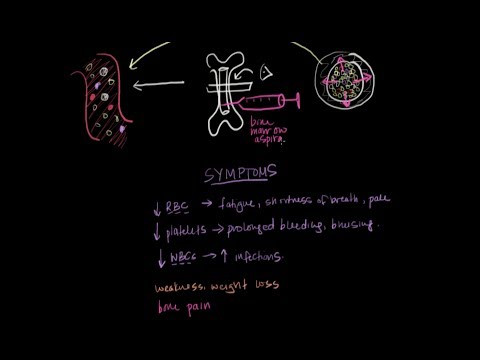 bone
marrow
aspira.
SYMPTOMS
↓ RBC → fatigue, shortness of breath, pale
↓ platelets → prolonged bleeding, bruising.
↓ WBCs → ↑ infections.
weakness, weight loss
bone pain